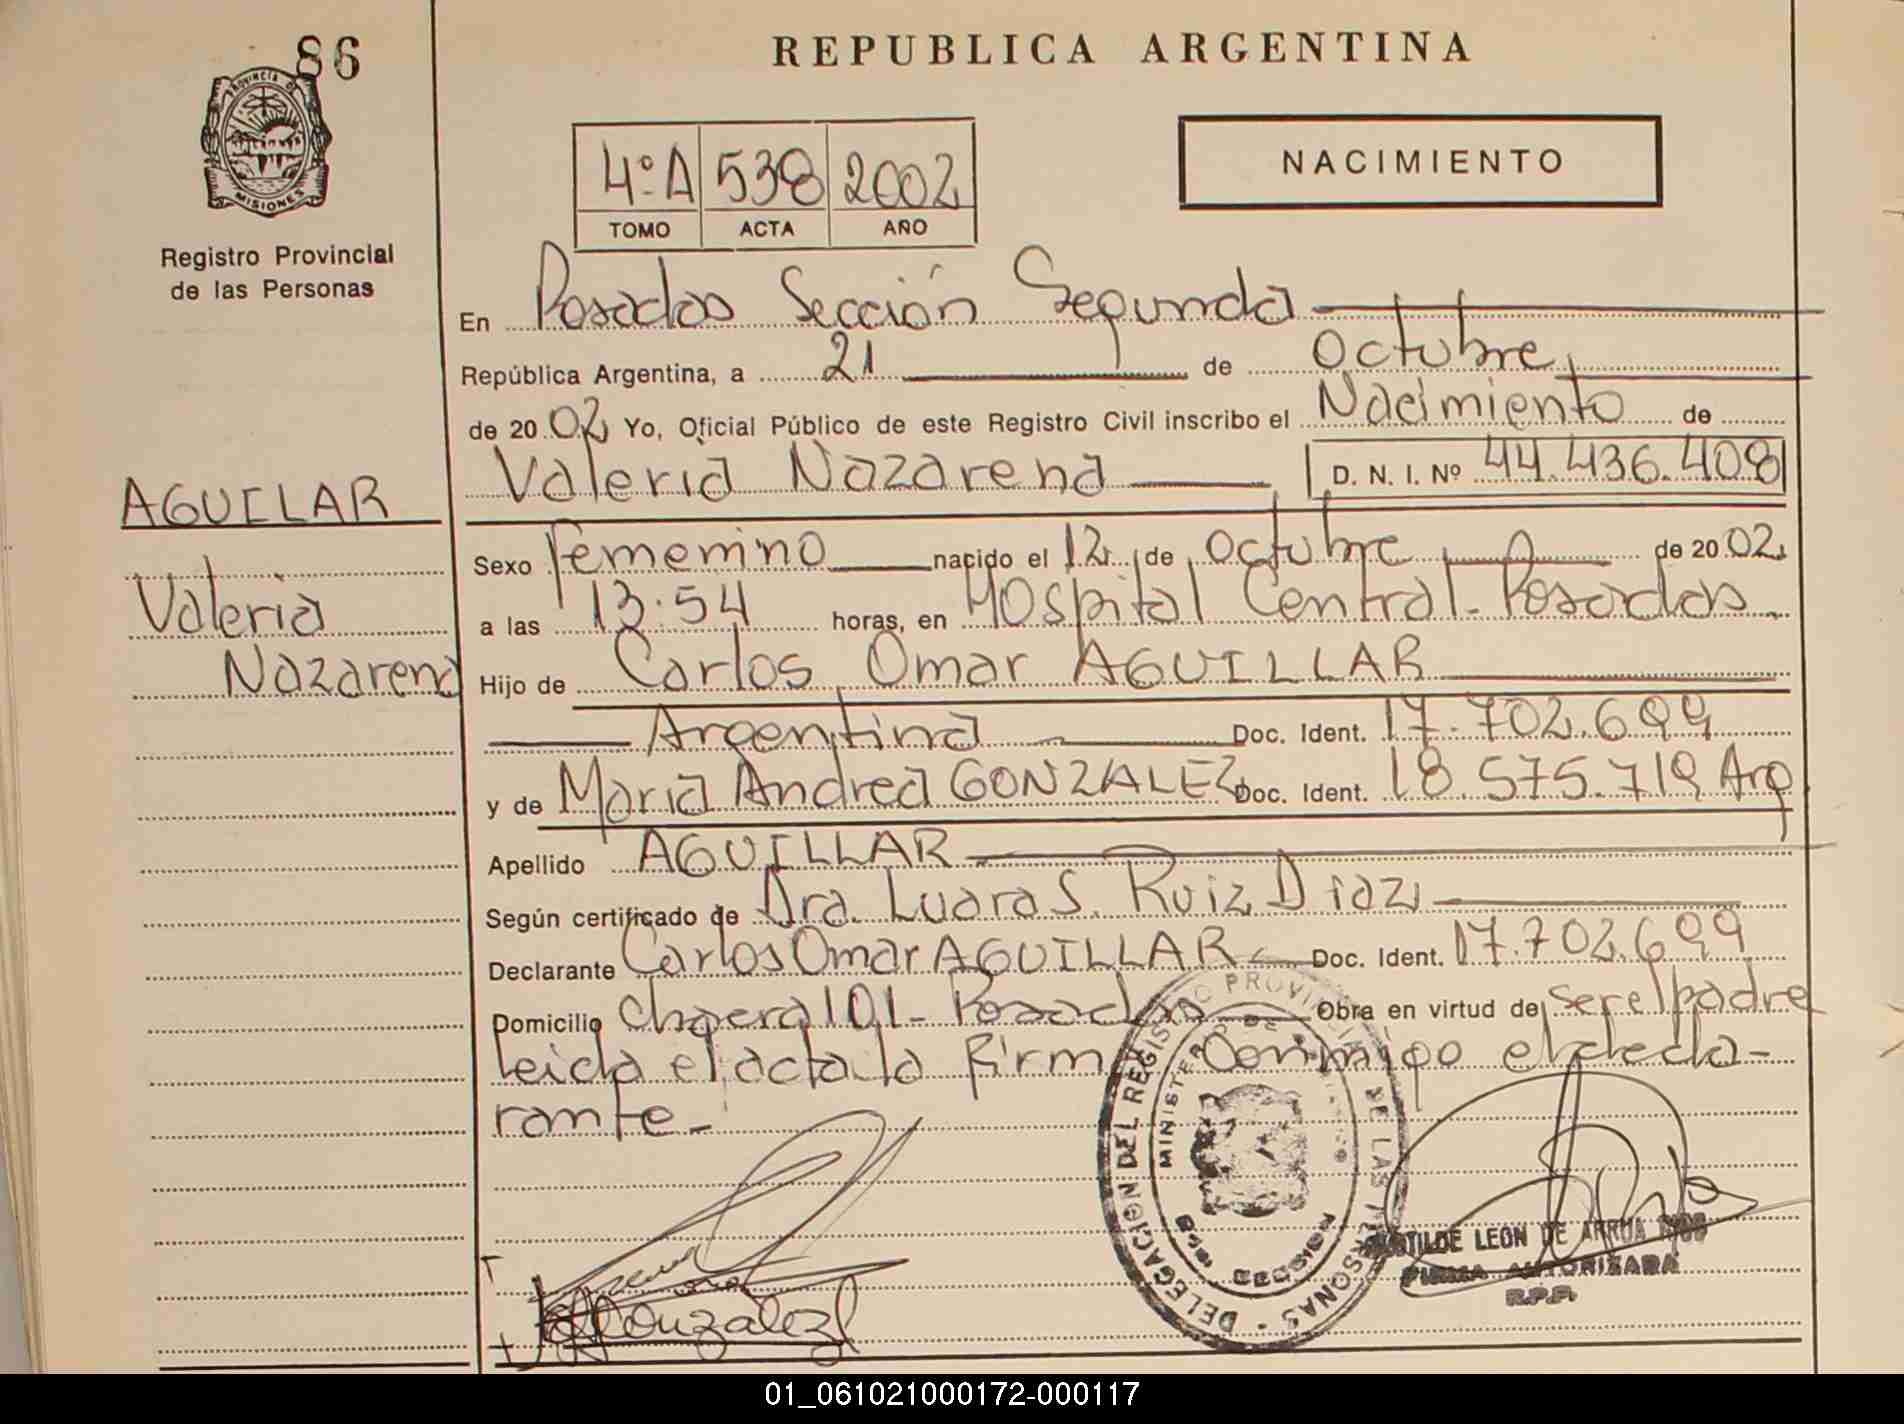 86
REPUBLICA ARGENTINA
PROVINCIA DE
MISIONES
Registro Provincial
de las Personas
4º A 538 2002
TOMO ACTA AÑO
NACIMIENTO
En Posadas Sección Segunda
República Argentina, a 21 de octubre
de 2002 Yo, Oficial Público de este Registro Civil inscribo el Nacimiento de
Valeria Nazarena D. N. I. Nº 44.436.408
AGUILAR
Valeria
Nazarena
Sexo Femenino nacido el 12 de octubre de 2002
a las 13:54 horas, en Hospital Central - Posadas
Hijo de Carlos Omar AGUILLAR
Argentina Doc. Ident. 17.702.699
y de Maria Andrea GONZALEZ Doc. Ident. 18.575.719 Arg
Apellido AGUILLAR
Según certificado de Dra. Luara S. Ruiz Diaz
Declarante Carlos Omar AGUILLAR Doc. Ident. 17.702.699
Domicilio Chacra 101 - Posadas Obra en virtud de ser el padre
leida el acta la firma conmigo el decla-
rante -
DELEGACION DEL REGISTRO PROVINCIAL DE LAS PERSONAS
MINISTERIO DE
POSADAS
Gonzalez
LEON DE ARRUA
FIRMA AUTORIZADA
R.P.P.
01_061021000172-000117